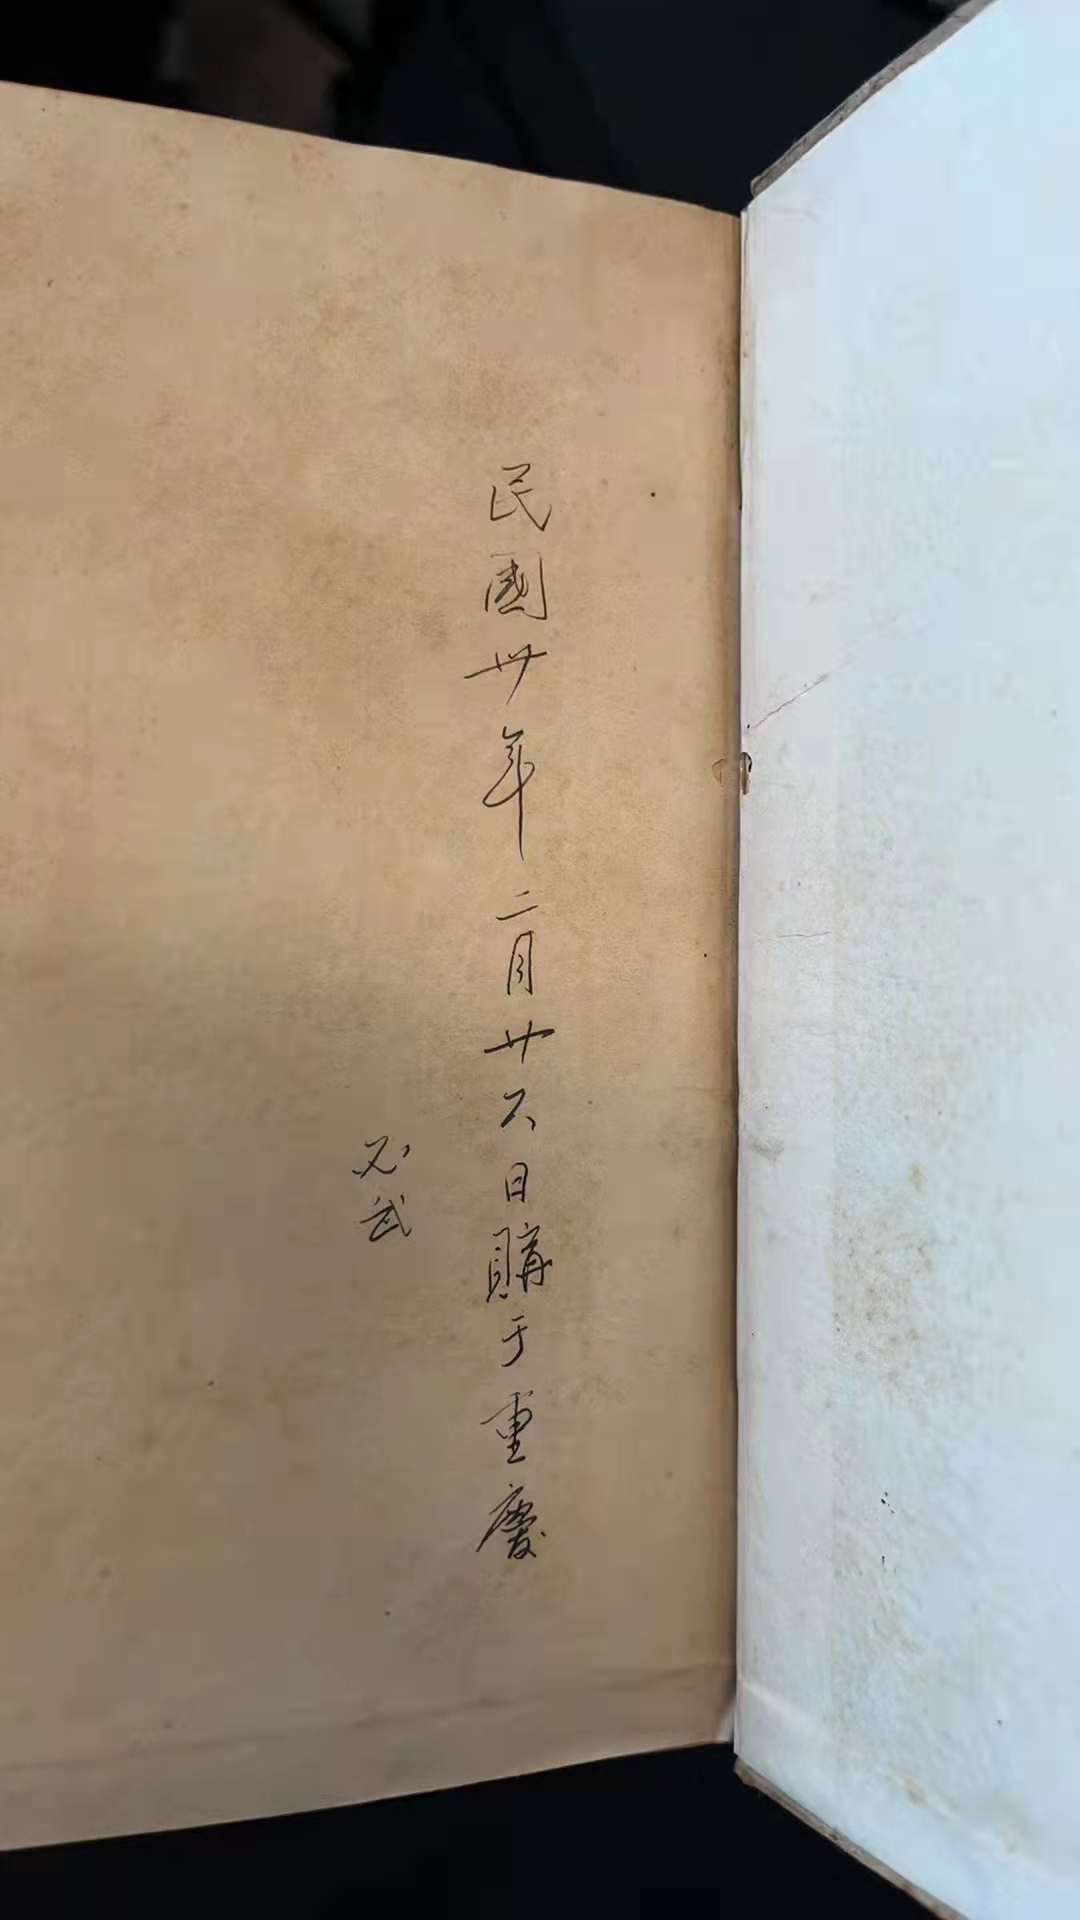 民國卅年二月廿六日購于重慶
必武